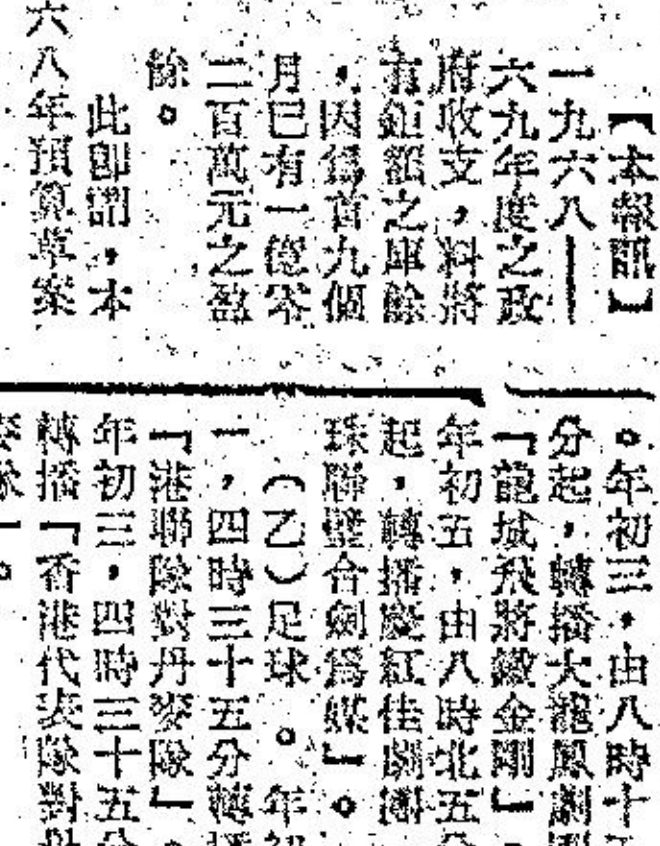 【本報訊】
一九六八——
六九年度之政
府收支，料將
有鉅額之庫餘
，因爲首九個
月已有一億零
二百萬元之盈
餘。
此卽謂，本
六八年預算草案
。年初三，由八時十五
分起，轉播大龍鳳劇團
『龍城飛將繳金剛』。
年初五，由八時北五分
起，轉播慶紅佳劇團
珠聯璧合劍爲媒』。
（乙）足球。年初
一，四時三十五分轉播
『港聯隊對丹麥隊』。
年初三，四時三十五分
轉播『香港代表隊對丹
麥隊』。